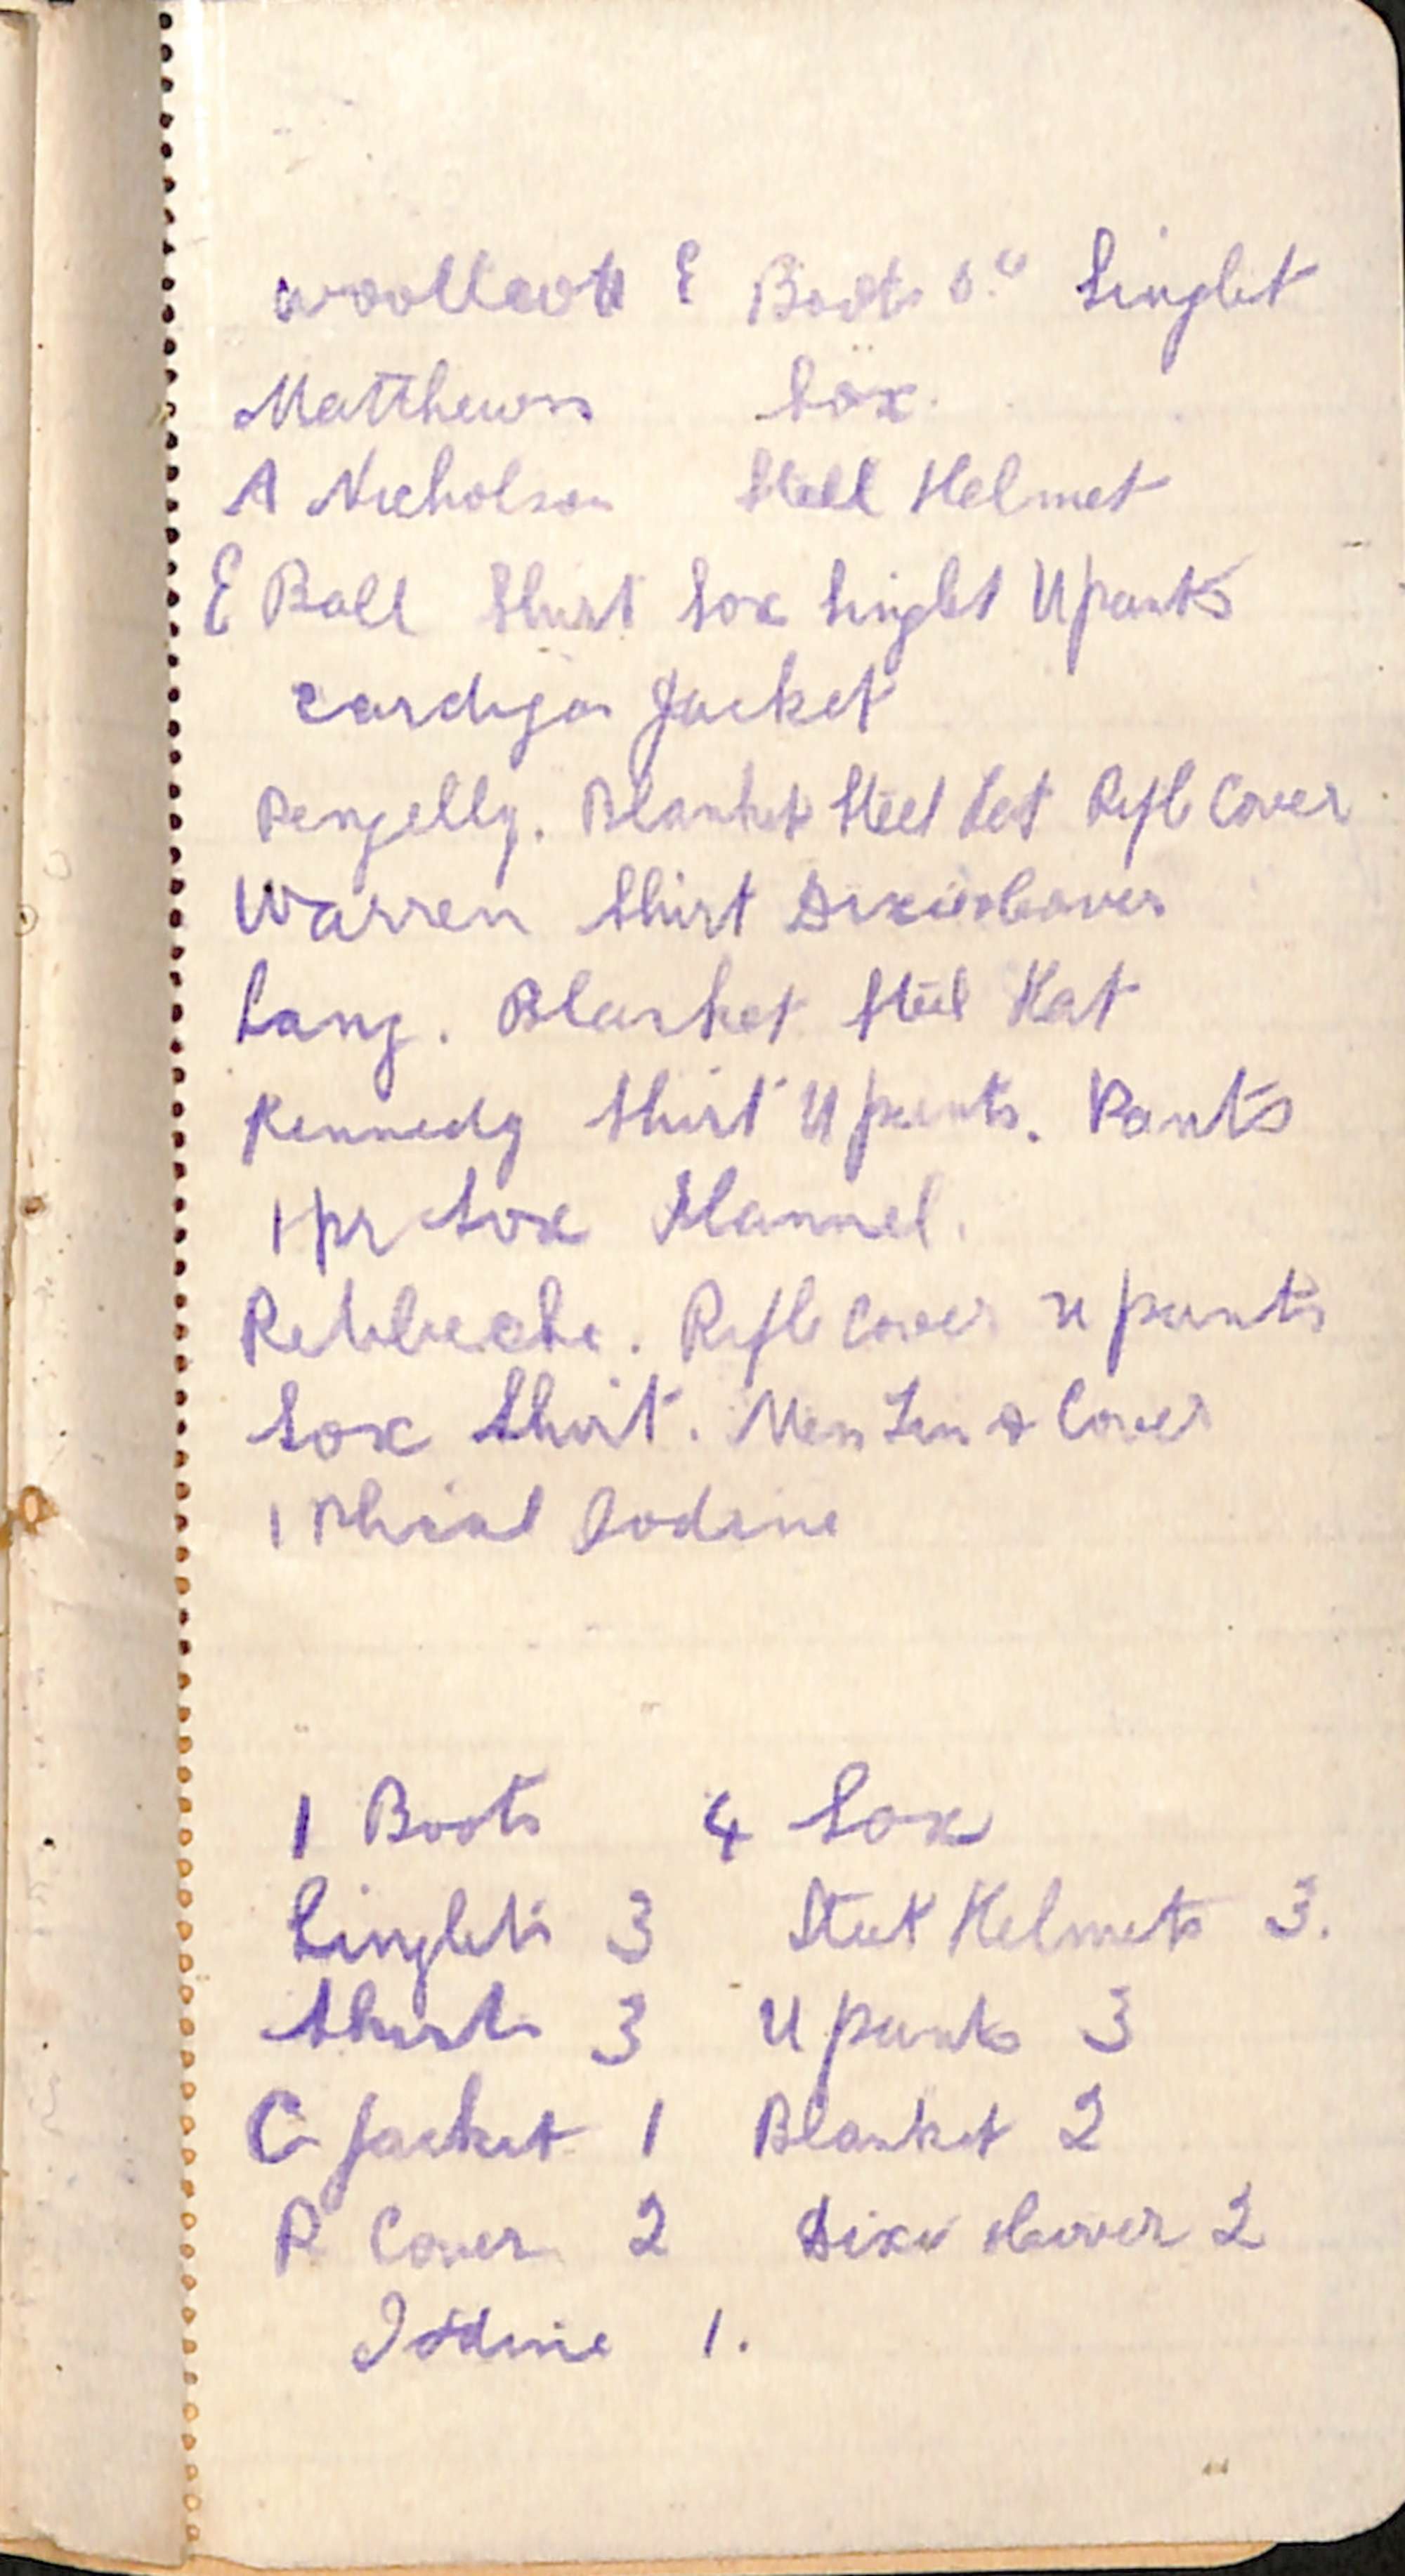 Woollcott E Boots 6." Singlet
Matthews Sox.
A Nicholson Steel Helmet
E Ball Shirt Sox Singlet U pants
Cardigan Jacket
Pengelly. Blanket Steel Hat Rifle Cover
Warren Shirt Dixie & Cover
Lang. Blanket Steel Hat
Kennedy Shirt U pants. Pants
1 pr Sox Flannel.
Rebbeche. Rifle Cover U pants
Sox Shirt. Mess Tin & Cover
1 Phial Iodine
1 Boots 4 Sox
Singlets 3 Steel Helmets 3.
Shirts 3 U pants 3
C Jacket 1 Blanket 2
R Cover 2 Dixie & Cover 2
Iodine 1.